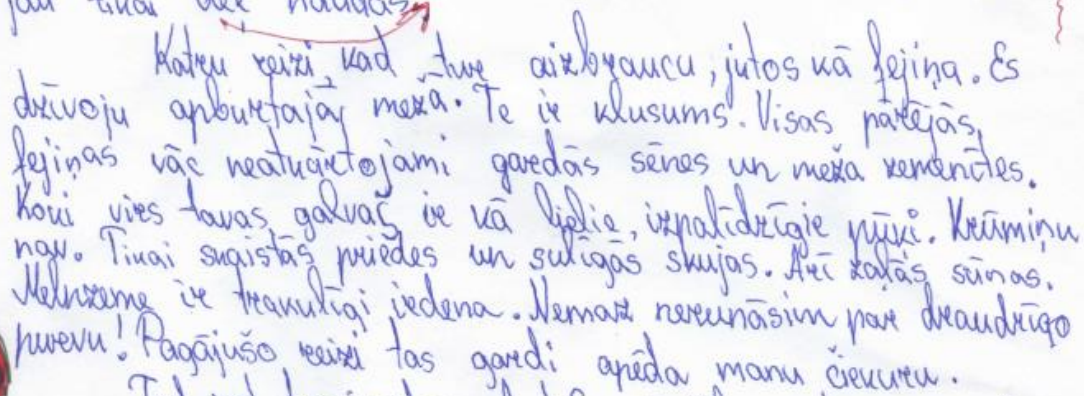 Katru reizi, kad tur aizbraucu, jutos kā fejiņa. Es
dzīvoju apburtajā mežā. Te ir klusums. Visas pārējās
fejiņas vāc neatkārtojami gardās sēnes un meža zemenītes.
Koki virs tavas galvas ir kā lielie, izpalīdzīgie pūķi. Krūmiņu
nav. Tikai skaistās priedes un sulīgās skujas. Arī zaļās sūnas.
Melnzeme ir trakulīgi irdena. Nemaz nerunāsim par draudzīgo
purvu! Pagājušo reizi tas gardi apēda manu čiekuru.